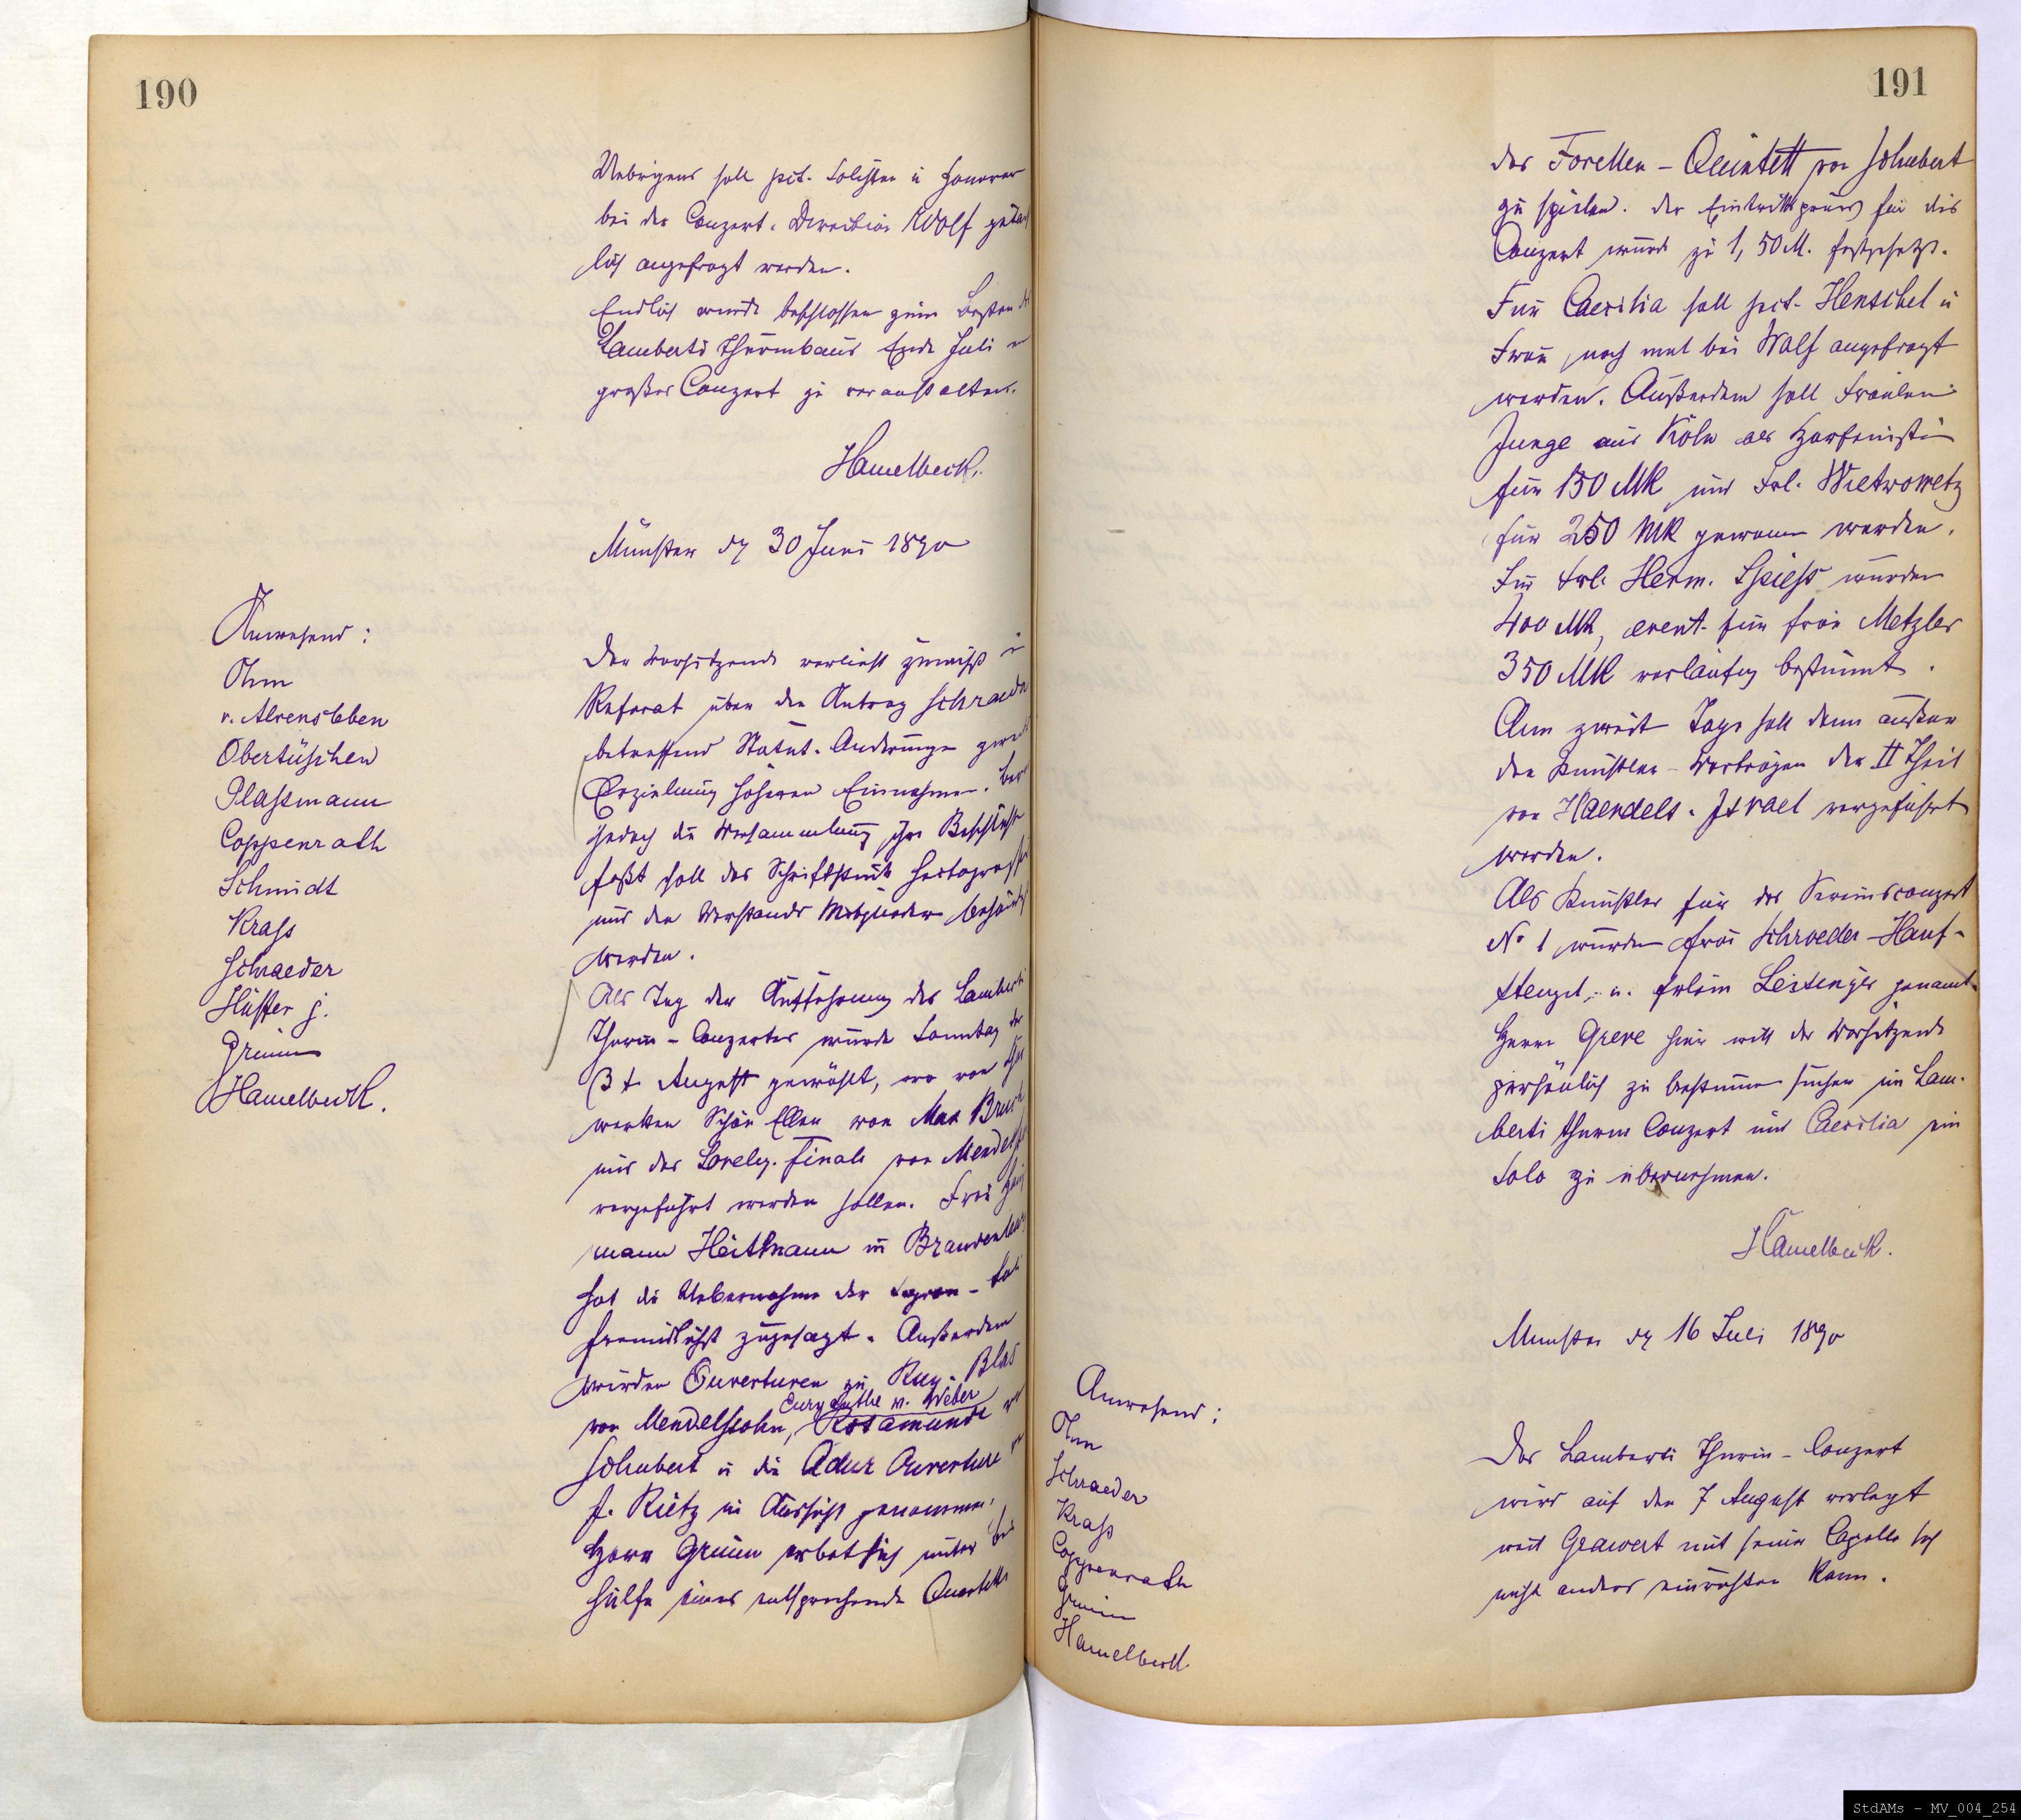 190
Uebrigens soll hins. Solisten u Honorar
bei der Conzert-Direction Wolf
angefragt werden.
Endlich wurde beschlossen zum Besten des
Lamberti Thurmbaus Ende Juli
großes Conzert zu veranstalten.
Hamelbeck.
Münster d. 30 Juni 1890
Anwesend:
Ohm
v. Alvensleben
Obertüschen
Plaßmann
Coppenrath
Schmidt
Krass
Schraeder
Hüffer j.
Grimm
Hamelbeck.
Der Vorsitzende verliest zunächst
Referat über den Antrag Schraeder
betreffend Statut-Änderungen
Erzielung höherer Einnahmen.
jedoch die Versammlung ihre Beschlüsse
faßt soll das Schriftstück
und den Vorstands Mitgliedern
werden.
Als Tag der Aufführung des Lamberti
Thurm-Conzertes wurde Sonntag der
3t August gewählt, wo von
werken Schön Ellen von Max Bruch
und das Loreley-Finale von
vorgeführt werden sollen. Frau
mann Heitmann in Brandenburg
hat die Uebernahme der Sopran-
freundlichst zugesagt. Außerdem
wurden Ouverturen zu Ruy-Blas
Euryanthe v. Weber
von Mendelssohn, Rosamunde
Schubert u die Adur Ouverture
J. Rietz in Aussicht genommen.
Herr Grimm erbot sich unter
hülfe eines entsprechenden Quartetts
191
das Forellen-Quintett von Schubert
zu spielen. Der Eintrittspreis für dies
Conzert wurde zu 1,50 M. festgesetzt.
Für Caecilia soll Henschel u
Frau noch mal bei Wolf angefragt
werden. Außerdem soll Fräulein
Junge aus Köln als Harfenistin
für 150 Mk und Frl. Wietrowetz
für 250 Mk gewonnen werden.
Für Frl. Herm. Spiess wurden
400 Mk, event. für Frau Metzler
350 Mk vorläufig bestimmt.
Am zweiten Tage soll dann außer
den Künstler-Vorträgen der II Theil
von Haendels-Israel vorgeführt
werden.
Als Künstler für das Vereinsconzert
No 1 wurden Frau Schroeder-Hanf-
stengel u. Frlein Leisinger genannt.
Herrn Greve hier will der Vorsitzende
persönlich zu bestimmen suchen im Lam-
berti Thurm Conzert und Caecilia ein
Solo zu übernehmen.
Hamelbeck.
Münster d. 16 Juli 1890
Anwesend:
Ohm
Schraeder
Krass
Coppenrath
Grimm
Hamelbeck
Das Lamberti Thurm-Conzert
wird auf den 7 August verlegt
weil Grawert mit seiner Capelle sich
nicht anders einrichten kann.
StdAMs - MV_004_254